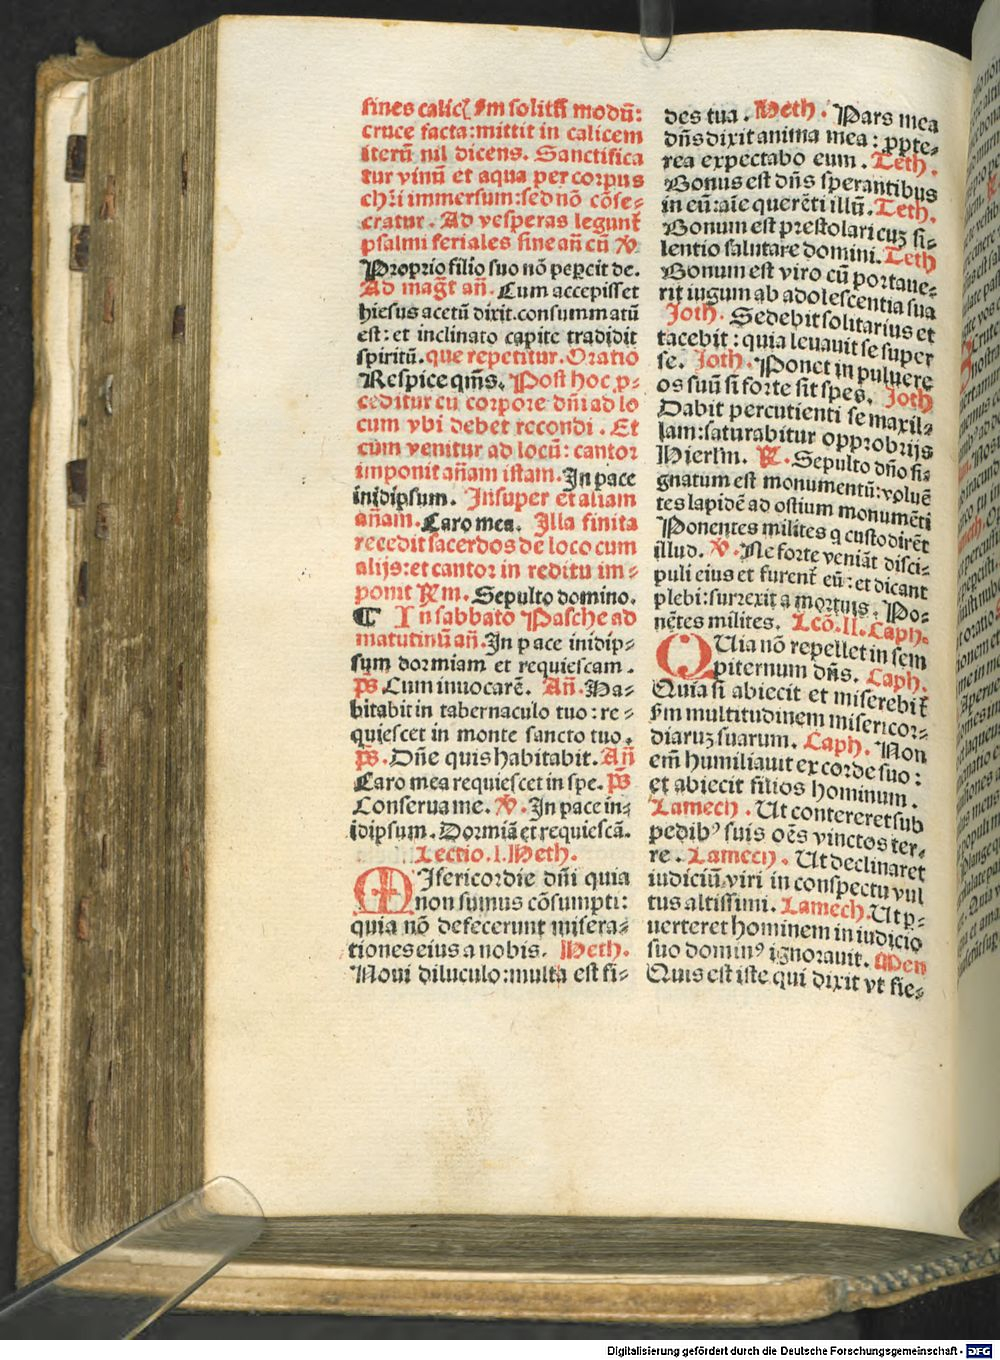 fines calicꝭ ẜm solitũ modũ:
cruce facta:mittit in calicem
iterũ nil dicens. Sanctifica
tur vinũ et aqua per corpus
chr̃i immersum:sed nõ cõse⸗
cratur. Ad vesperas legunt᷑
psalmi feriales sine añ cũ ꝟ
Proprio filio suo nõ pepercit de.
Ad magt᷑ añ. Cum accepisset
hiesus acetũ dixit.consummatũ
est: et inclinato capite tradidit
spiritũ. que repetitur. Oratio
Respice qm̃s. Post hoc ꝓ⸗
ceditur cũ corpore dñi ad lo
cum vbi debet recondi . Et
cum venitur ad locũ: cantor
imponit añam istam. In pace
inidipsum. Insuper et aliam
añam. Caro mea. Illa finita
recedit sacerdos de loco cum
alijs:et cantor in reditu im⸗
ponit Rm. Sepulto domino.
¶ In sabbato Pasche ad
matutinũ añ. In pace inidip⸗
sum dormiam et requiescam.
p̃s Cum inuocarẽ. Añ. Ha⸗
bitabit in tabernaculo tuo: re⸗
quiescet in monte sancto tuo.
p̃s. Dñe quis habitabit. Añ
Caro mea requiescet in spe. p̃s
Conserua me. ꝟ. In pace in⸗
idipsum. Dormiã et requiescã.
Lectio.I. Heth.
MIsericordie dñi quia
non sumus cõsumpti:
quia nõ defecerunt misera⸗
tiones eius a nobis. Heth.
Noui diluculo:multa est fi⸗
des tua. Heth. Pars mea
dñs dixit anima mea: ꝓpte⸗
rea expectabo eum. Teth.
Bonus est dñs sperantibus
in eũ: aĩe querẽti illũ. Teth.
Bonum est prestolari cuʒ si⸗
lentio salutare domini. Teth
Bonum est viro cũ portaue⸗
rit iugum ab adolescentia sua
Joth. Sedebit solitarius et
tacebit: quia leuauit se super
se. Joth. Ponet in puluere
os suũ si forte sit spes. Joth
Dabit percutienti se maxil⸗
lam:saturabitur opprobrijs
Hierl̃m. R. Sepulto dño si⸗
gnatum est monumentũ:voluẽ
tes lapidẽ ad ostium monumẽti
Ponentes milites q custodirẽt
illud. ꝟ. Ne forte veniãt disci⸗
puli eius et furent᷑ eũ: et dicant
plebi:surrexit a mortuis. Po⸗
nẽtes milites. Lcõ.II. Caph.
QUia nõ repellet in sem
piternum dñs. Caph.
Quia si abiecit et miserebit᷑
ẜm multitudinem misericor⸗
diaruʒ suarum. Caph. Non
em̃ humiliauit ex corde suo:
et abiecit filios hominum.
Lamech. Ut contereret sub
pedibꝰ suis oẽs vinctos ter⸗
re. Lamech. Ut declinaret
iudiciũ viri in conspectu vul
tus altissimi. Lamech. Ut ꝑ⸗
uerteret hominem in iudicio
suo dominꝰ ignorauit. Men
Quis est iste qui dixit vt fie⸗
Digitalisierung gefördert durch die Deutsche Forschungsgemeinschaft - DFG